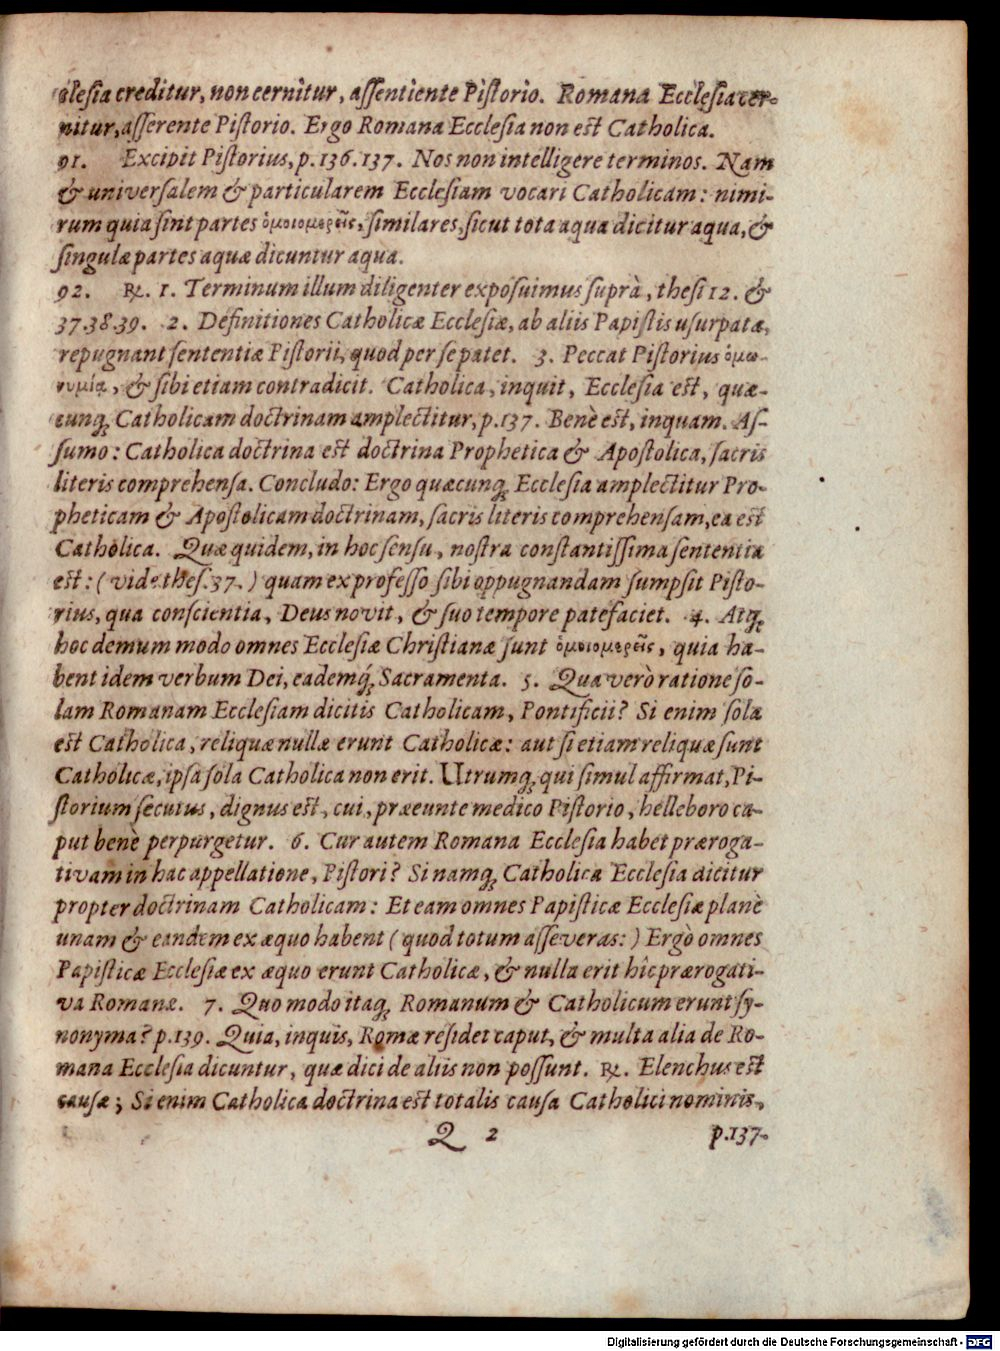 clesia creditur, non cernitur, assentiente Pistorio. Romana Ecclesia cer-
nitur, asserente Pistorio. Ergo Romana Ecclesia non est Catholica.
91. Excipit Pistorius, p. 136. 137. Nos non intelligere terminos. Nam
& universalem & particularem Ecclesiam vocari Catholicam: nimi-
rum quia sint partes ὁμοιομερεῖς, similares, sicut tota aqua dicitur aqua, &
singulæ partes aquæ dicuntur aqua.
92. ℞. 1. Terminum illum diligenter exposuimus suprà, thesi 12. &
37.38.39. 2. Definitiones Catholicæ Ecclesiæ, ab aliis Papistis usurpatæ,
repugnant sententiæ Pistorii, quod per se patet. 3. Peccat Pistorius ὁμω-
νυμίᾳ, & sibi etiam contradicit. Catholica, inquit, Ecclesia est, quæ-
cunq; Catholicam doctrinam amplectitur, p. 137. Benè est, inquam. As-
sumo: Catholica doctrina est doctrina Prophetica & Apostolica, sacris
literis comprehensa. Concludo: Ergo quæcunq; Ecclesia amplectitur Pro-
pheticam & Apostolicam doctrinam, sacris literis comprehensam, ea est
Catholica. Quæ quidem, in hoc sensu, nostra constantissima sententia
est: (vide thes. 37.) quam ex professo sibi oppugnandam sumpsit Pisto-
rius, qua conscientia, Deus novit, & suo tempore patefaciet. 4. Atq;
hoc demum modo omnes Ecclesiæ Christianæ sunt ὁμοιομερεῖς, quia ha-
bent idem verbum Dei, eademq́; Sacramenta. 5. Qua verò ratione so-
lam Romanam Ecclesiam dicitis Catholicam, Pontificii? Si enim sola
est Catholica, reliquæ nullæ erunt Catholicæ: aut si etiam reliquæ sunt
Catholicæ, ipsa sola Catholica non erit. Utrumq; qui simul affirmat, Pi-
storium secutus, dignus est, cui, præeunte medico Pistorio, helleboro ca-
put benè perpurgetur. 6. Cur autem Romana Ecclesia habet præroga-
tivam in hac appellatione, Pistori? Si namq; Catholica Ecclesia dicitur
propter doctrinam Catholicam: Et eam omnes Papisticæ Ecclesiæ planè
unam & eandem ex æquo habent (quod totum asseveras:) Ergò omnes
Papisticæ Ecclesiæ ex æquo erunt Catholicæ, & nulla erit hîc prærogati-
va Romanæ. 7. Quomodo itaq; Romanum & Catholicum erunt sy-
nonyma? p. 139. Quia, inquis, Romæ residet caput, & multa alia de Ro-
mana Ecclesia dicuntur, quæ dici de aliis non possunt. ℞. Elenchus est
causæ; Si enim Catholica doctrina est totalis causa Catholici nominis,
Q 2 p. 137.
Digitalisierung gefördert durch die Deutsche Forschungsgemeinschaft - DFG